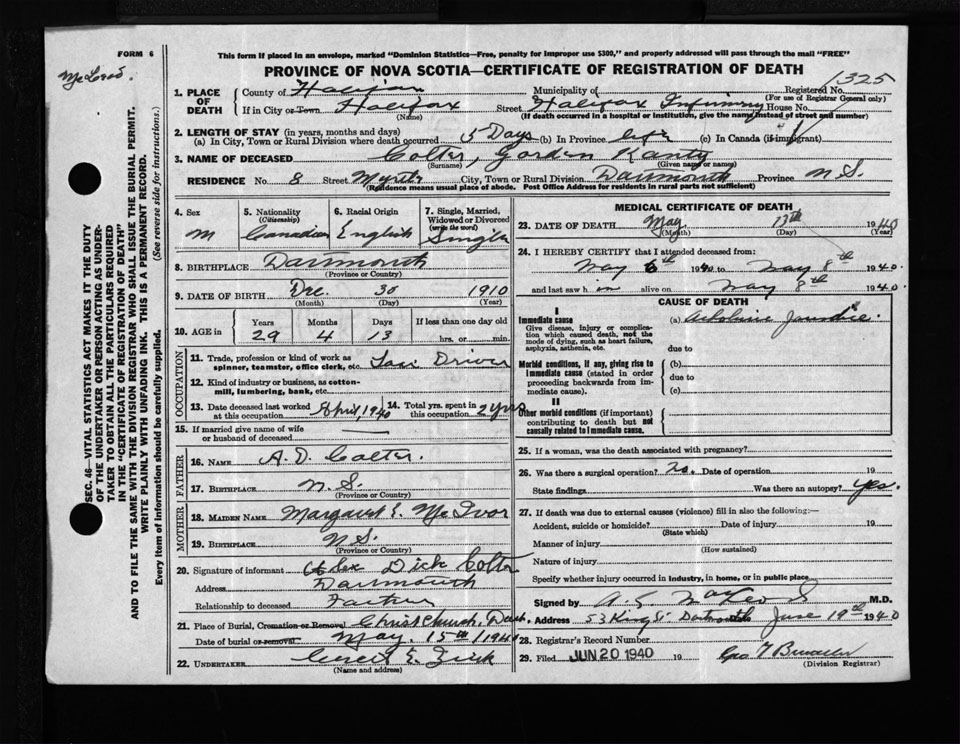 FORM 6
McLeod.
This form if placed in an envelope, marked "Dominion Statistics—Free, penalty for improper use $300," and properly addressed will pass through the mail "FREE"
PROVINCE OF NOVA SCOTIA—CERTIFICATE OF REGISTRATION OF DEATH
1325
1. PLACE OF DEATH
County of Halifax Municipality of Registered No.
(For use of Registrar General only)
If in City or Town Halifax Street Halifax Infirmary House No.
(Name) (If death occurred in a hospital or institution, give the name instead of street and number)
2. LENGTH OF STAY (in years, months and days)
(a) In City, Town or Rural Division where death occurred 5 Days (b) In Province life (c) In Canada (if immigrant)
3. NAME OF DECEASED Colter, Gordon
(Surname) (Given name or names)
RESIDENCE No. 8 Street Myrtle City, Town or Rural Division Dartmouth Province N.S.
(Residence means usual place of abode. Post Office Address for residents in rural parts not sufficient)
4. Sex
M
5. Nationality
(Citizenship)
Canadian
6. Racial Origin
English
7. Single, Married, Widowed or Divorced
(write the word)
Single
8. BIRTHPLACE Dartmouth
(Province or Country)
9. DATE OF BIRTH Dec. 30 1910
(Month) (Day) (Year)
10. AGE in
Years Months Days If less than one day old
29 4 13 hrs. or min.
OCCUPATION
11. Trade, profession or kind of work as spinner, teamster, office clerk, etc. Taxi Driver
12. Kind of industry or business, as cotton-mill, lumbering, bank, etc.
13. Date deceased last worked at this occupation April, 1940
14. Total yrs. spent in this occupation 2 yrs
15. If married give name of wife or husband of deceased
FATHER
16. NAME A. D. Colter.
17. BIRTHPLACE N.S.
(Province or Country)
MOTHER
18. MAIDEN NAME Margaret E. McIvor
19. BIRTHPLACE N.S.
(Province or Country)
20. Signature of informant Dick Colter
Address Dartmouth
Relationship to deceased Father
21. Place of Burial, Cremation or Removal Christ Church, Dart.
Date of burial or removal May. 15th/1940
22. UNDERTAKER
(Name and address)
MEDICAL CERTIFICATE OF DEATH
23. DATE OF DEATH May 13th 1940
(Month) (Day) (Year)
24. I HEREBY CERTIFY that I attended deceased from:
May 6th 1940 to May 8th 1940.
and last saw h im alive on May 8th 1940.
CAUSE OF DEATH
I
Immediate cause
Give disease, injury or complication which caused death, not the mode of dying, such as heart failure, asphyxia, asthenia, etc.
(a) Jaundice.
due to
Morbid conditions, if any, giving rise to immediate cause (stated in order proceeding backwards from immediate cause).
(b)
due to
(c)
II
Other morbid conditions (if important) contributing to death but not causally related to immediate cause.
25. If a woman, was the death associated with pregnancy?
26. Was there a surgical operation? No. Date of operation 19
State findings Was there an autopsy? yes.
27. If death was due to external causes (violence) fill in also the following:—
Accident, suicide or homicide? Date of injury 19
(State which)
Manner of injury
(How sustained)
Nature of injury
Specify whether injury occurred in industry, in home, or in public place
Signed by A. S. MacLeod M.D.
Address 53 King St Dartmouth June 19th 1940
28. Registrar's Record Number
29. Filed JUN 20 1940 19 Geo
(Division Registrar)
SEC. 46—VITAL STATISTICS ACT MAKES IT THE DUTY OF THE UNDERTAKER OR PERSON ACTING AS UNDERTAKER TO OBTAIN ALL THE PARTICULARS REQUIRED IN THE "CERTIFICATE OF REGISTRATION OF DEATH" AND TO FILE THE SAME WITH THE DIVISION REGISTRAR WHO SHALL ISSUE THE BURIAL PERMIT.
WRITE PLAINLY WITH UNFADING INK. THIS IS A PERMANENT RECORD.
Every item of information should be carefully supplied. (See reverse side for instructions.)